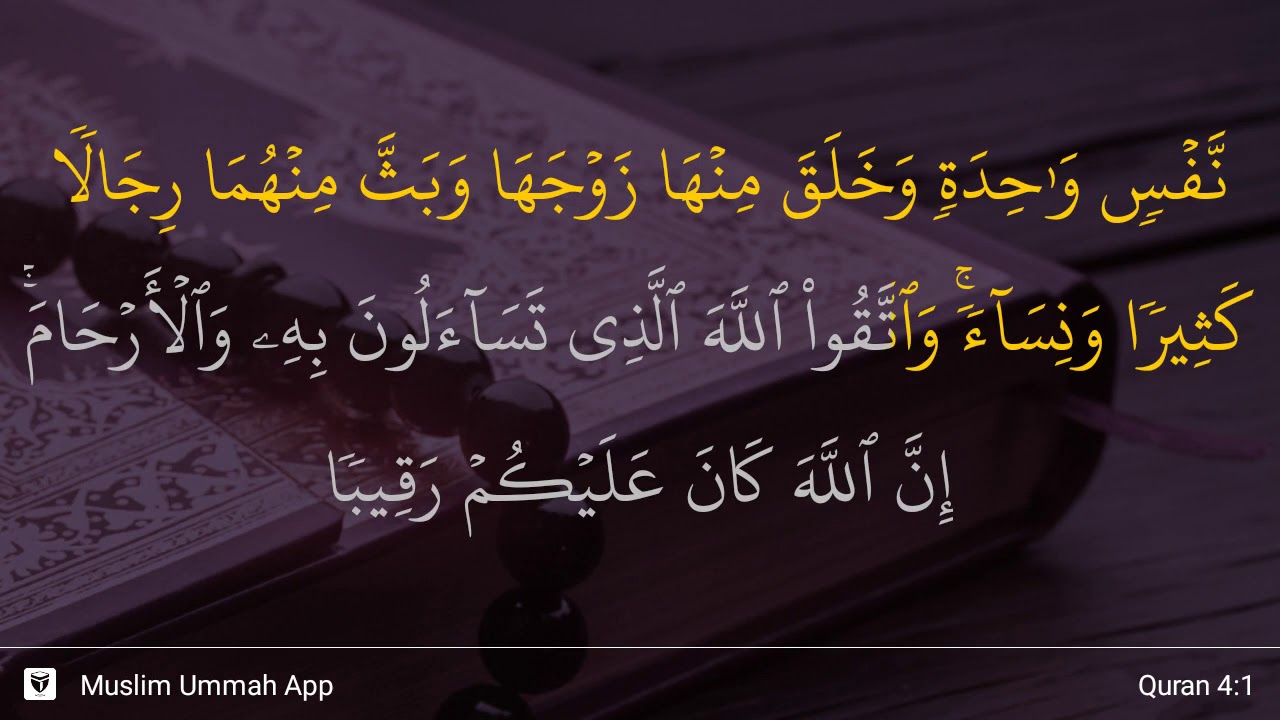 نَّفۡسٖ وَٰحِدَةٖ وَخَلَقَ مِنۡهَا زَوۡجَهَا وَبَثَّ مِنۡهُمَا رِجَالٗا
كَثِيرٗا وَنِسَآءٗۚ وَٱتَّقُواْ ٱللَّهَ ٱلَّذِي تَسَآءَلُونَ بِهِۦ وَٱلۡأَرۡحَامَۚ
إِنَّ ٱللَّهَ كَانَ عَلَيۡكُمۡ رَقِيبٗا
Muslim Ummah App
Quran 4:1